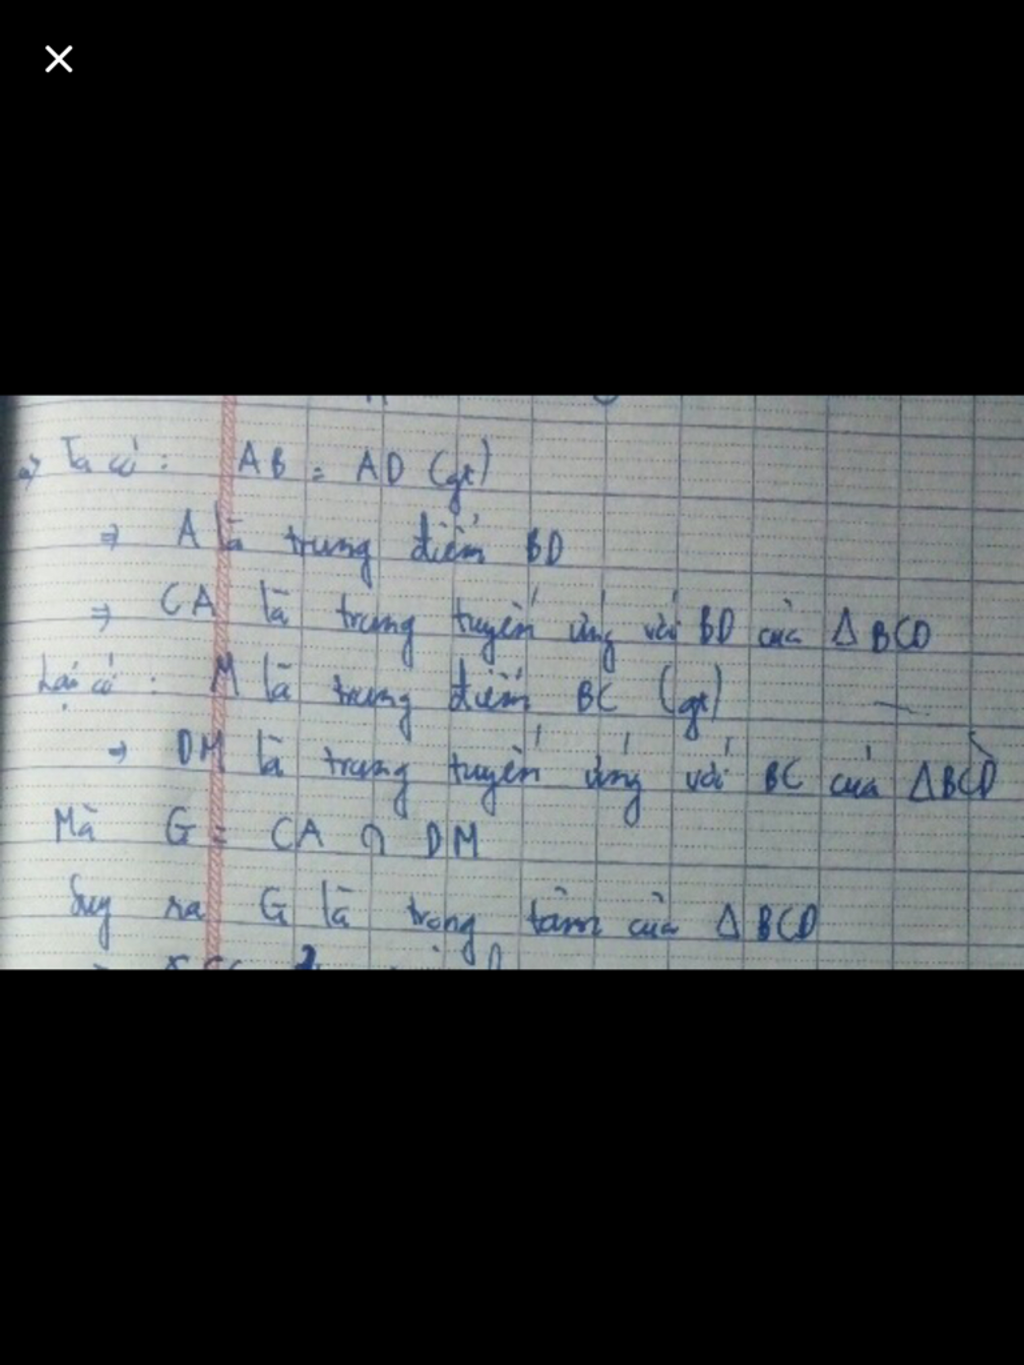 a) Ta có : AB = AD (gt)
⇒ A là trung điểm BD
⇒ CA là trung tuyến ứng với BD của Δ BCD
Lại có : M là trung điểm BC (gt)
⇒ DM là trung tuyến ứng với BC của ΔBCD
Mà G = CA ∩ DM
Suy ra G là trọng tâm của Δ BCD